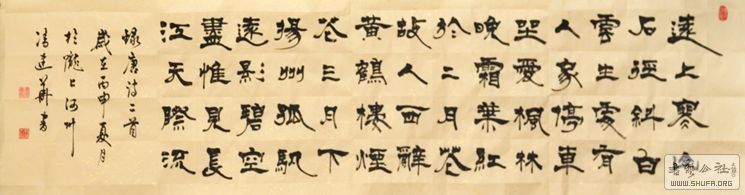 遠上寒山
石徑斜白
雲生處有
人家停車
坐愛楓林
晚霜葉紅
於二月花
故人西辭
黃鶴樓煙
花三月下
揚州孤帆
遠影碧空
盡惟見長
江天際流
錄唐詩二首
歲在丙申夏月
於隴上河州
馮建華書
公社
WWW.SHUFA.ORG